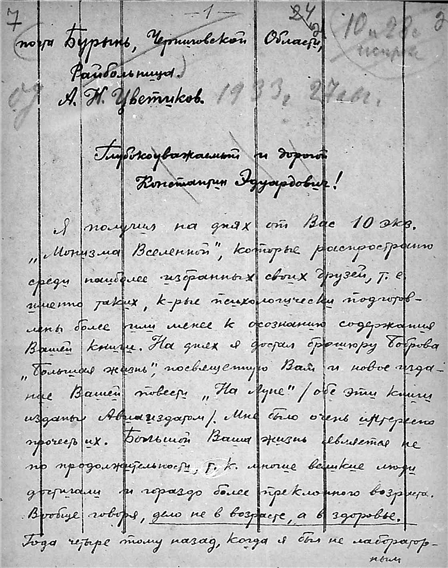 7 — 1 — 24 3
почта Бурынь, Черниговской Области,
Райбольница.
А. Н. Цветиков. 1933г 27
Глубокоуважаемый и дорогой
Константин Эдуардович!
Я получил на днях от Вас 10 экз.
„Монизма Вселенной", которые распространю
среди наиболее избранных своих друзей, т. е.
именно таких, к-рые психологически подготов-
лены более или менее к осознанию содержания
Вашей книги. На днях я достал брошюру Боброва
„Большая жизнь", посвященную Вам и новое изда-
ние Вашей повести „На Луне" /обе эти книги
изданы Авиаиздатом/. Мне было очень интересно
прочесть их. Большой Ваша жизнь является не
по продолжительности, т. к. многие великие люди
достигали и гораздо более преклонного возраста.
Вообще говоря, дело не в возрасте, а в здоровье.
Года четыре тому назад, когда я был не лаборатор-
ным